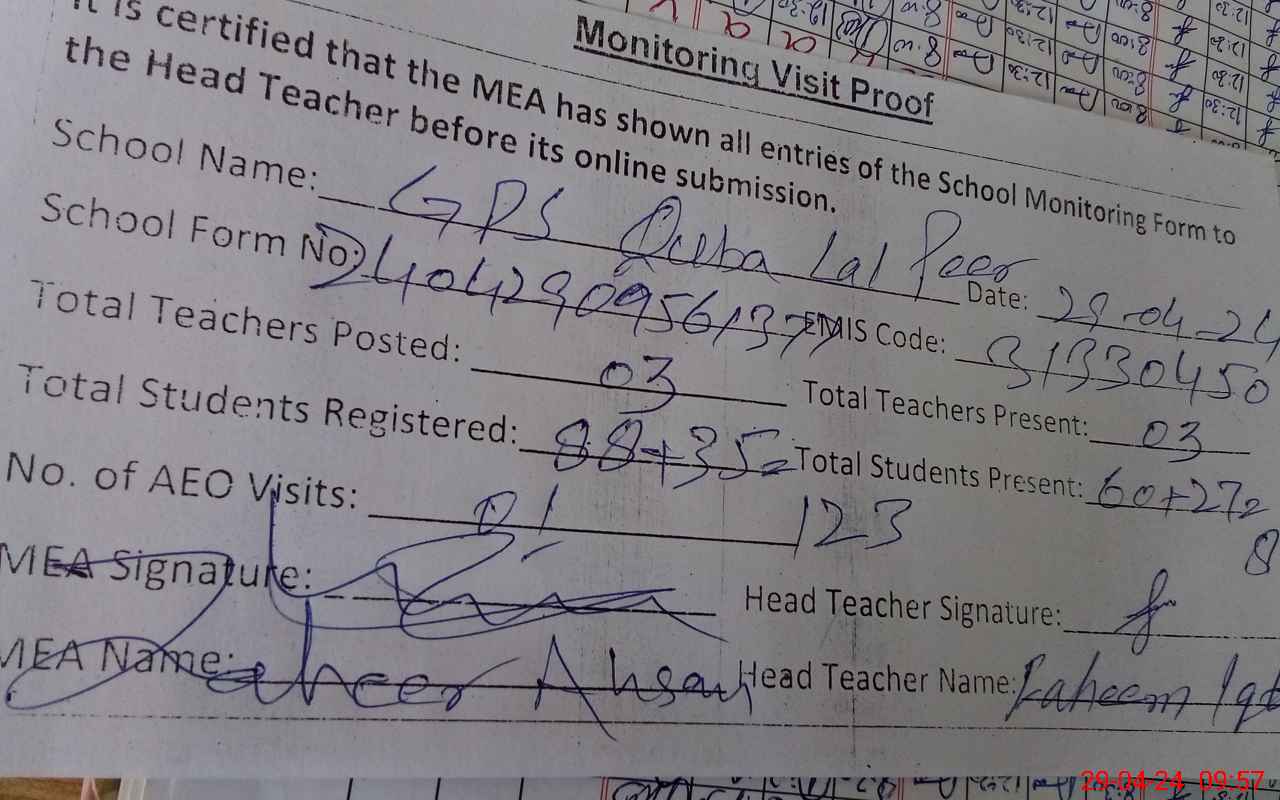 Monitoring Visit Proof
It is certified that the MEA has shown all entries of the School Monitoring Form to
the Head Teacher before its online submission.
School Name: GPS Quba Lal Peer
Date: 29-04-24
School Form No: 2404290956137
EMIS Code: 31330450
Total Teachers Posted: 03
Total Teachers Present: 03
Total Students Registered: 88+35=
123
Total Students Present: 60+27=
8
No. of AEO Visits: 01
MEA Signature:
Head Teacher Signature:
MEA Name: Zaheer Ahsan
Head Teacher Name: Faheem Iqb
29-04-24 09:57